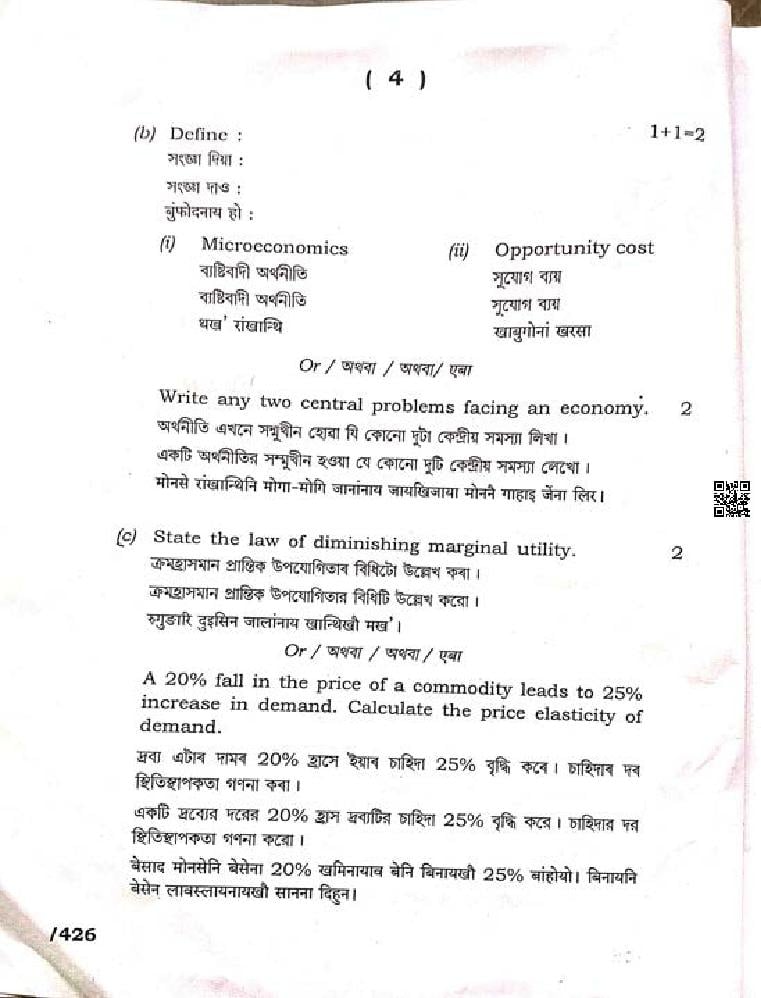 ( 4 )
(b) Define : 1+1=2
সংজ্ঞা দিয়া :
সংজ্ঞা দাও :
बुंफोदनाय हो :
(i) Microeconomics (ii) Opportunity cost
ব্যষ্টিবাদী অৰ্থনীতি সুযোগ ব্যয়
ব্যষ্টিবাদী অর্থনীতি সুযোগ ব্যয়
थख' रांखान्थि खाबुगोनां खरसा
Or / অথবা / অথবা/ एबा
Write any two central problems facing an economy. 2
অৰ্থনীতি এখনে সন্মুখীন হোৱা যি কোনো দুটা কেন্দ্ৰীয় সমস্যা লিখা ।
একটি অর্থনীতির সম্মুখীন হওয়া যে কোনো দুটি কেন্দ্রীয় সমস্যা লেখো ।
मोनसे रांखान्थिनि मोगा-मोगि जानांनाय जायखिजाया मोननै गाहाइ जेंना लिर।
(c) State the law of diminishing marginal utility. 2
ক্ৰমহ্ৰাসমান প্ৰান্তিক উপযোগিতাৰ বিধিটো উল্লেখ কৰা ।
ক্রমহ্রাসমান প্রান্তিক উপযোগিতার বিধিটি উল্লেখ করো ।
रुगुङारि दुइसिन जालांनाय खान्थिखौ मख'।
Or / অথবা / অথবা / एबा
A 20% fall in the price of a commodity leads to 25%
increase in demand. Calculate the price elasticity of
demand.
দ্ৰব্য এটাৰ দামৰ 20% হ্ৰাসে ইয়াৰ চাহিদা 25% বৃদ্ধি কৰে । চাহিদাৰ দৰ
স্থিতিস্থাপকতা গণনা কৰা ।
একটি দ্রব্যের দরের 20% হ্রাস দ্রব্যটির চাহিদা 25% বৃদ্ধি করে । চাহিদার দর
স্থিতিস্থাপকতা গণনা করো ।
बेसाद मोनसेनि बेसेना 20% खमिनायाव बेनि बिनायखौ 25% बांहोयो। बिनायनि
बेसेन लाबस्लायनायखौ सानना दिहुन।
/426